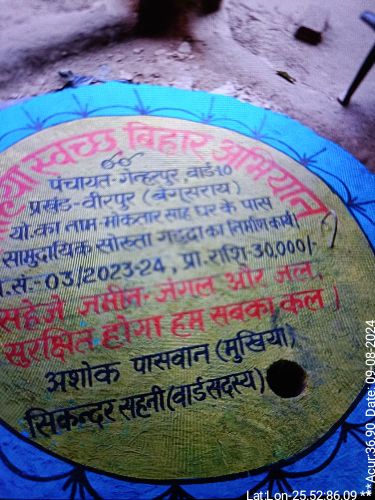 स्वच्छ बिहार अभियान
पंचायत-गेन्हरपुर, वार्ड-10
प्रखंड-वीरपुर (बेगूसराय)
यो.का नाम मोकतार साह घर के पास
सामुदायिक सोख्ता गड्ढा का निर्माण कार्य।
सं.-03/2023-24, प्रा.राशि-30,000/-
सहेजे जमीन-जंगल और जल,
सुरक्षित होगा हम सबका कल)
अशोक पासवान (मुखिया)
सिकन्दर सहनी (वार्ड सदस्य)
Lat:Lon-25.52:86.09 ** Acur:36.90 Date: 09-08-2024